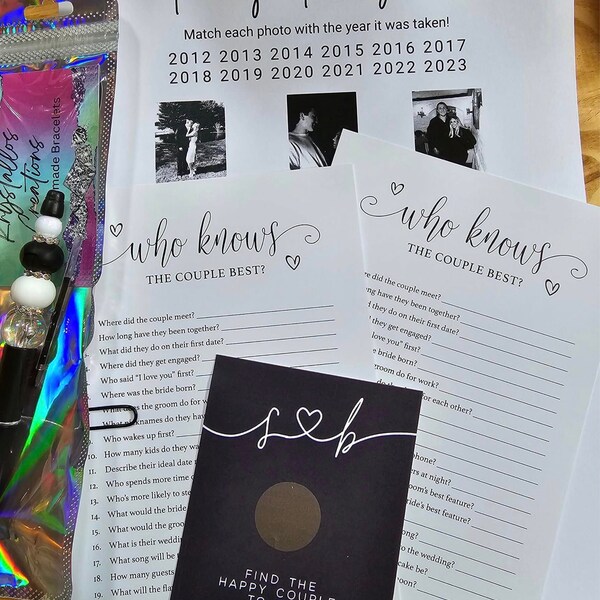 Match each photo with the year it was taken!
2012 2013 2014 2015 2016 2017
2018 2019 2020 2021 2022 2023
Krystallos
Creations
made Bracelets
who knows
THE COUPLE BEST?
Where did the couple meet?
How long have they been together?
What did they do on their first date?
Where did they get engaged?
Who said "I love you" first?
Where was the bride born?
the groom do for work?
names do they ha
Who wakes up first?
10. How many kids do they wa
11. Describe their ideal date
12. Who spends more time
13. Who's more likely to ste
14. What would the bride
15. What would the groo
16. What is their wedding
17. What song will be
18. How many guests
19. What will the fla
who knows
THE COUPLE BEST?
re did the couple meet?
have they been together?
they do on their first date?
they get engaged?
love you" first?
e bride born?
groom do for work?
do the for each other?
phone?
ers at night?
oom's best feature?
ride's best feature?
to the wedding?
cake be?
oon?
s b
FIND THE
HAPPY COUPLE